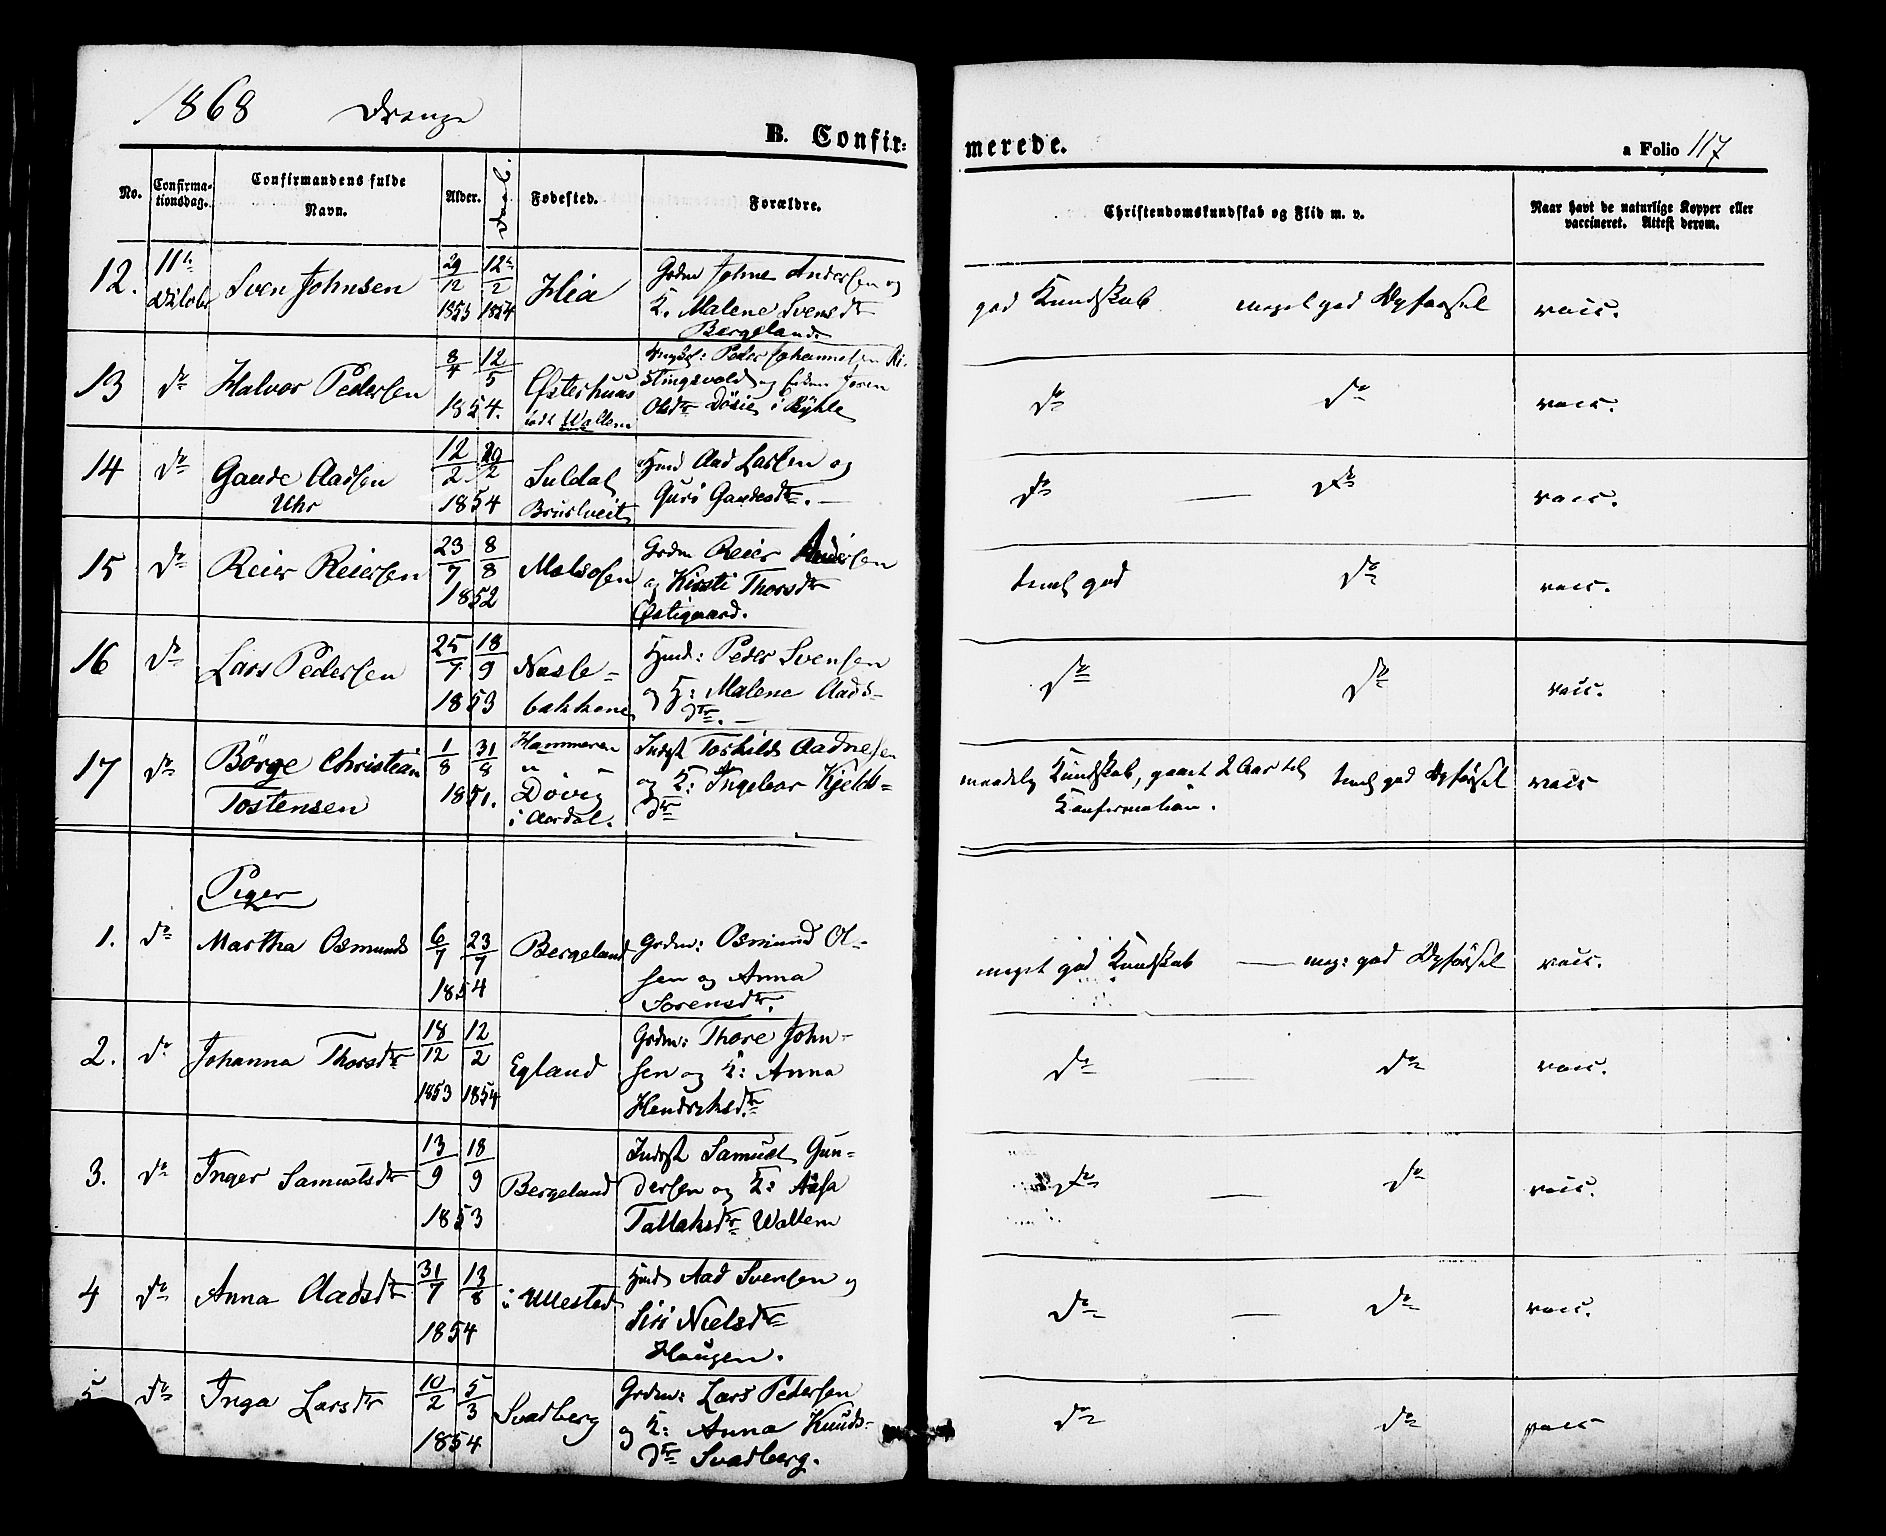 1868 Drenge
B. Confir: merede.
a Folio 117
No. Confirma-tionsdag. Confirmandens fulde Navn. Alder. Daab. Fødested. Forældre. Christendomskundskab og Flid m. v. Naar havt de naturlige Kopper eller vaccineret. Attest derom.
12. 11te Oktobr Sven Johnsen 29/12 1853 12te/2 1854 Hia Grdm Johne Andersen og
K. Malene Svensdtr
Bergeland.
god Kundskab meget god Opførsel vacc.
13 do Halvor Pedersen 8/4 12/5 1854. Østerhuus
født Wallem
Peder Johannesen Ri-
stingsvold og Joren
Olsdtr Dösie i Böhle
do do vacc.
14 do Gaude Aadsen
Uhr
12/2 20/2 1854 Suldal
Bruslveit
Hmd Aad Larsen og
Guri Gaudesdtr. —
do — do vacc.
15 do Reier Reiersen 23/7 8/8 1852 Melsosen Grdm Reier Andersen
og Kirsti Thorsdtr
Østigaard.
teml god do vacc.
16 do Lars Pedersen 25/7 18/9 1853 Nesle=
bakkene
Hmd: Peder Svensen
og K: Malene Aads-
dtr. —
do do vacc.
17 do Börge Christian
Tostensen
1/8 31/8 1851. Hammeren
Dövig
i Aardal.
Indst Torkild Aadnesen
og K: Ingebor Kjelds=
dtr
maadelig Kundskab, gaaet 2 Aar til
Konfirmation.
teml god Opførsel vacc
Piger
1. do Martha Osmunds 6/7 23/7 1854 Bergeland Grdm: Osmund Ol-
sen og Anna
Sorensdtr.
meget god Kundskab — meg: god Opførsel vacc.
2. do Johanna Thorsdtr 18/12 1853 12/2 1854 Egland Grdm: Thore John-
sen og K: Anna
Hendriksdtr
do — do vacc.
3. do Inger Samuelsdtr 13/9 18/9 1853 Bergeland Inderst Samuel Gun-
dersen og K: Aasa
Tallaksdtr Wallem
do — do vacc.
4 do Anna Aadsdtr 31/7 13/8 1854 i Ullested Hmd Aad Svensen og
Siri Nielsdtr
Haugen.
do — do vacc.
5 do Inga Larsdtr 10/2 5/3 1854 Svadberg Grdm: Lars Pedersen
og K: Anna Knuds-
dtr Svadberg.
do do vacc